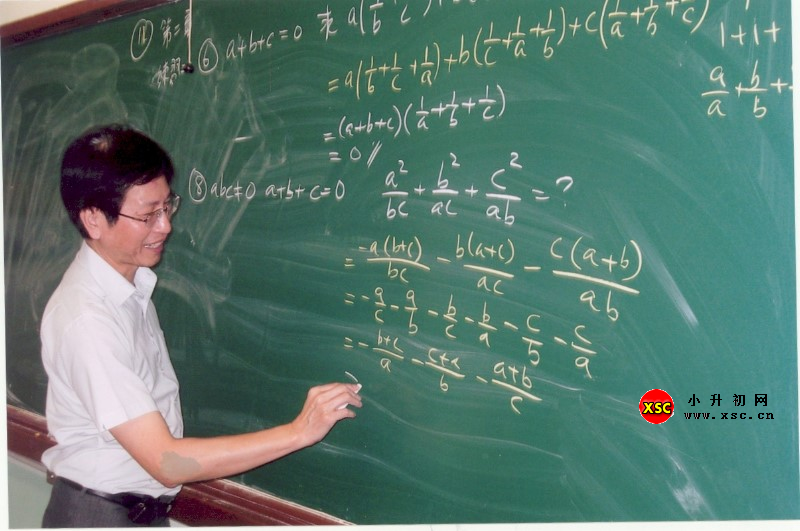 ⑥ a+b+c=0 求 a(1/b 1/c
= a(1/b+1/c+1/a)+b(1/c+1/a+1/b)+c(1/a+1/b+1/c)
= (a+b+c)(1/a+1/b+1/c)
= 0 //
1+1+
a/a+b/b+
⑧ abc≠0 a+b+c=0 a²/bc+b²/ac+c²/ab=?
= -a(b+c)/bc - b(a+c)/ac - c(a+b)/ab
= -a/c-a/b-b/c-b/a-c/b-c/a
= -b+c/a-c+a/b-a+b/c
XSC 小升初网
www.xsc.cn